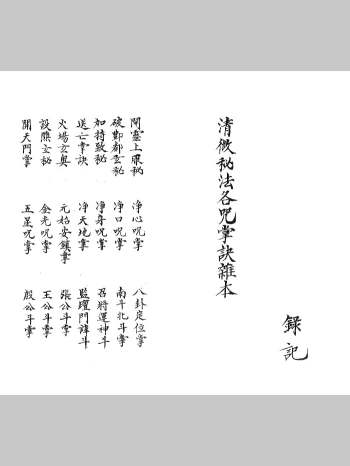 錄記
清微秘法各咒掌訣雜本
開靈上眼秘 淨心咒掌 八卦定位掌
破酆都玄秘 淨口咒掌 南斗北斗掌
如持致秘 淨身咒掌 召將運神斗
送亡掌訣 淨天地掌 監壇門諱斗
火場玄奥 元始安鎮掌 張公斗掌
設醮玄秘 金光咒掌 王公斗掌
開天門掌 五星咒掌 殷公斗掌